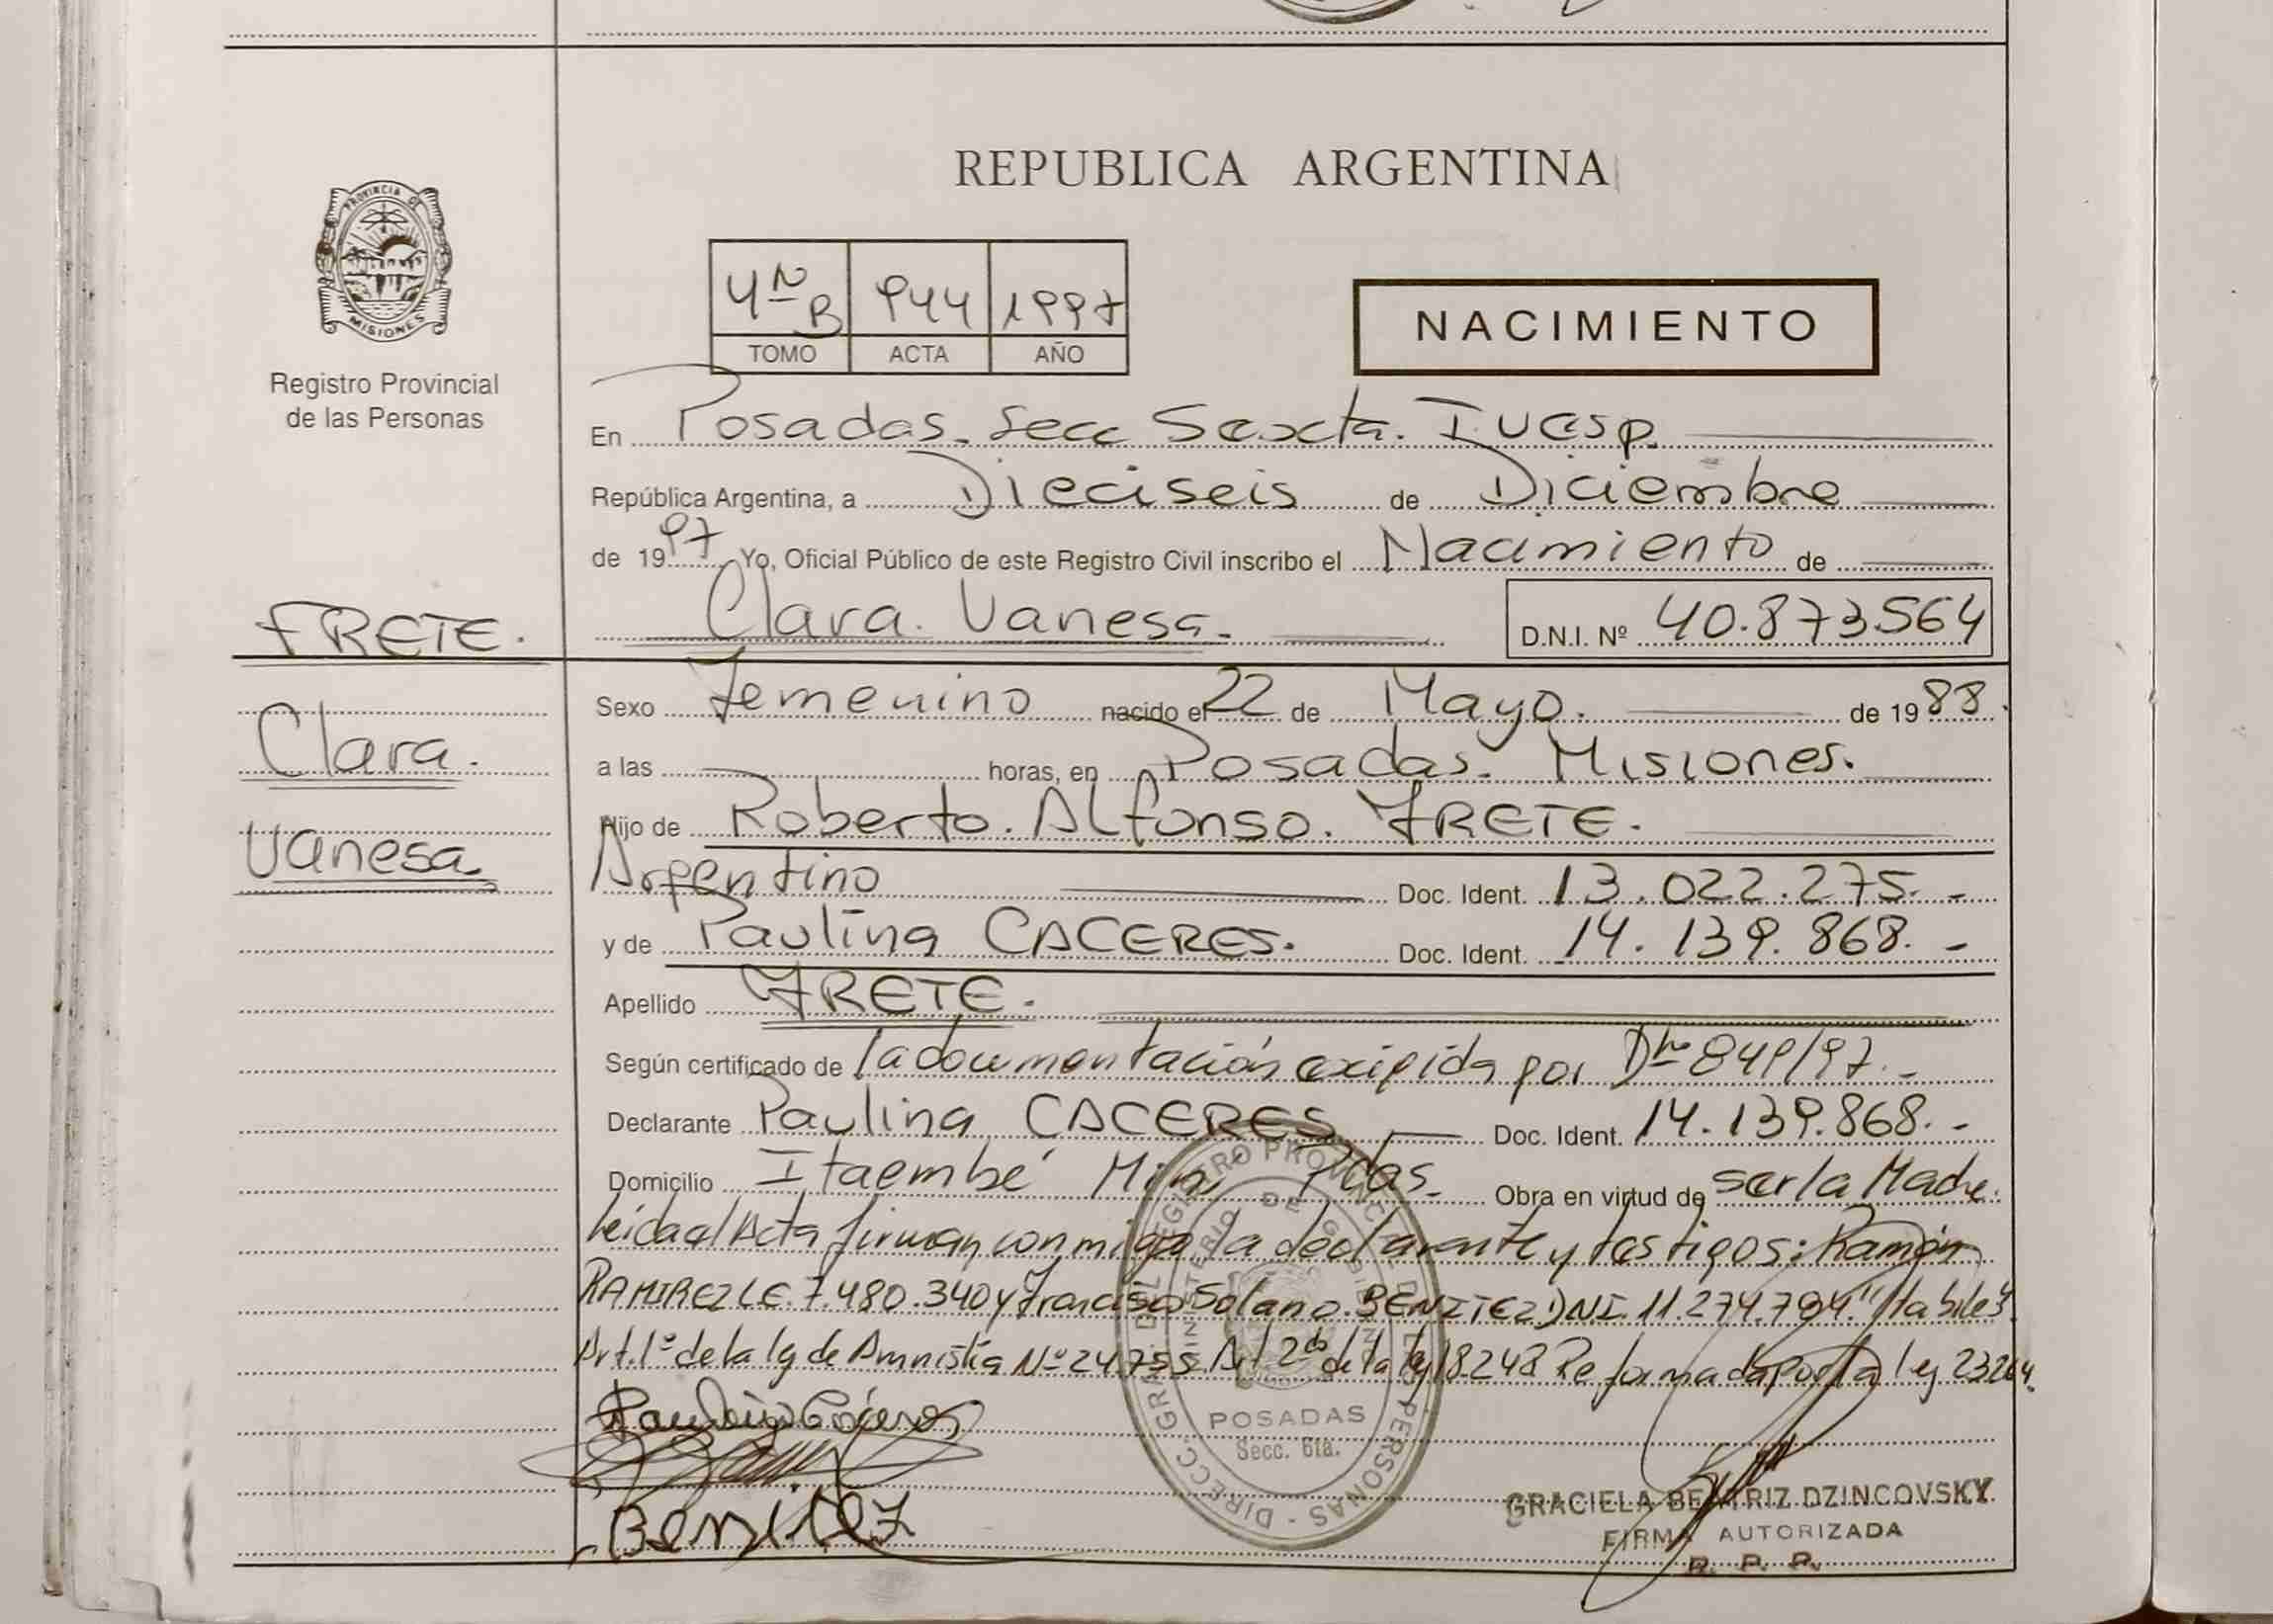 REPUBLICA ARGENTINA
PROVINCIA DE
MISIONES
Registro Provincial
de las Personas
4º B 944 1997
TOMO ACTA AÑO
NACIMIENTO
En Posadas. Secc Sexta. IUESP.
República Argentina, a Dieciseis de Diciembre
de 1997 Yo, Oficial Público de este Registro Civil inscribo el Nacimiento de
Clara. Vanesa. D.N.I. Nº 40.873564
FRETE.
Clara.
Vanesa.
Sexo Femenino nacido el 22 de Mayo. de 1988.
a las horas, en Posadas. Misiones.
Hijo de Roberto. Alfonso. FRETE.
Argentino Doc. Ident. 13.022.275.-
y de Paulina CACERES. Doc. Ident. 14.139.868.-
Apellido FRETE.
Según certificado de la documentación exigida por D 849/97.-
Declarante Paulina CACERES Doc. Ident. 14.139.868.-
Domicilio Itaembé Mini Pdas. Obra en virtud de ser la Madre.
leida el Acta firman conmigo la declarante y testigos: Ramón
RAMIREZ LE. 7.480.340 y Francisco Solano. BENITEZ DNI. 11.274.794. "Habiles"
Art. 1º de la ley de Amnistia Nº 24.755 Art 2do de la ley 18.248 Reformada por la ley 23264.
Paulina Cáceres
Benitez
DIRECC. GRAL. DEL REGISTRO PROVINCIAL DE LAS PERSONAS
MINISTERIO DE GOBIERNO
POSADAS
Secc. 6ta.
GRACIELA BEATRIZ DZINCOVSKY
FIRMA AUTORIZADA
R. P. P.